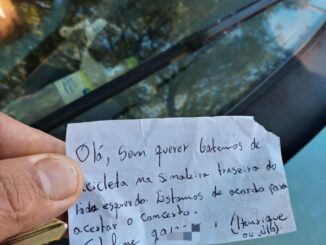 Olá, sem querer batemos de
bicicleta na sinaleira traseira do
lado esquerdo. Estamos de acordo para
acertar o concerto.
(Henrique